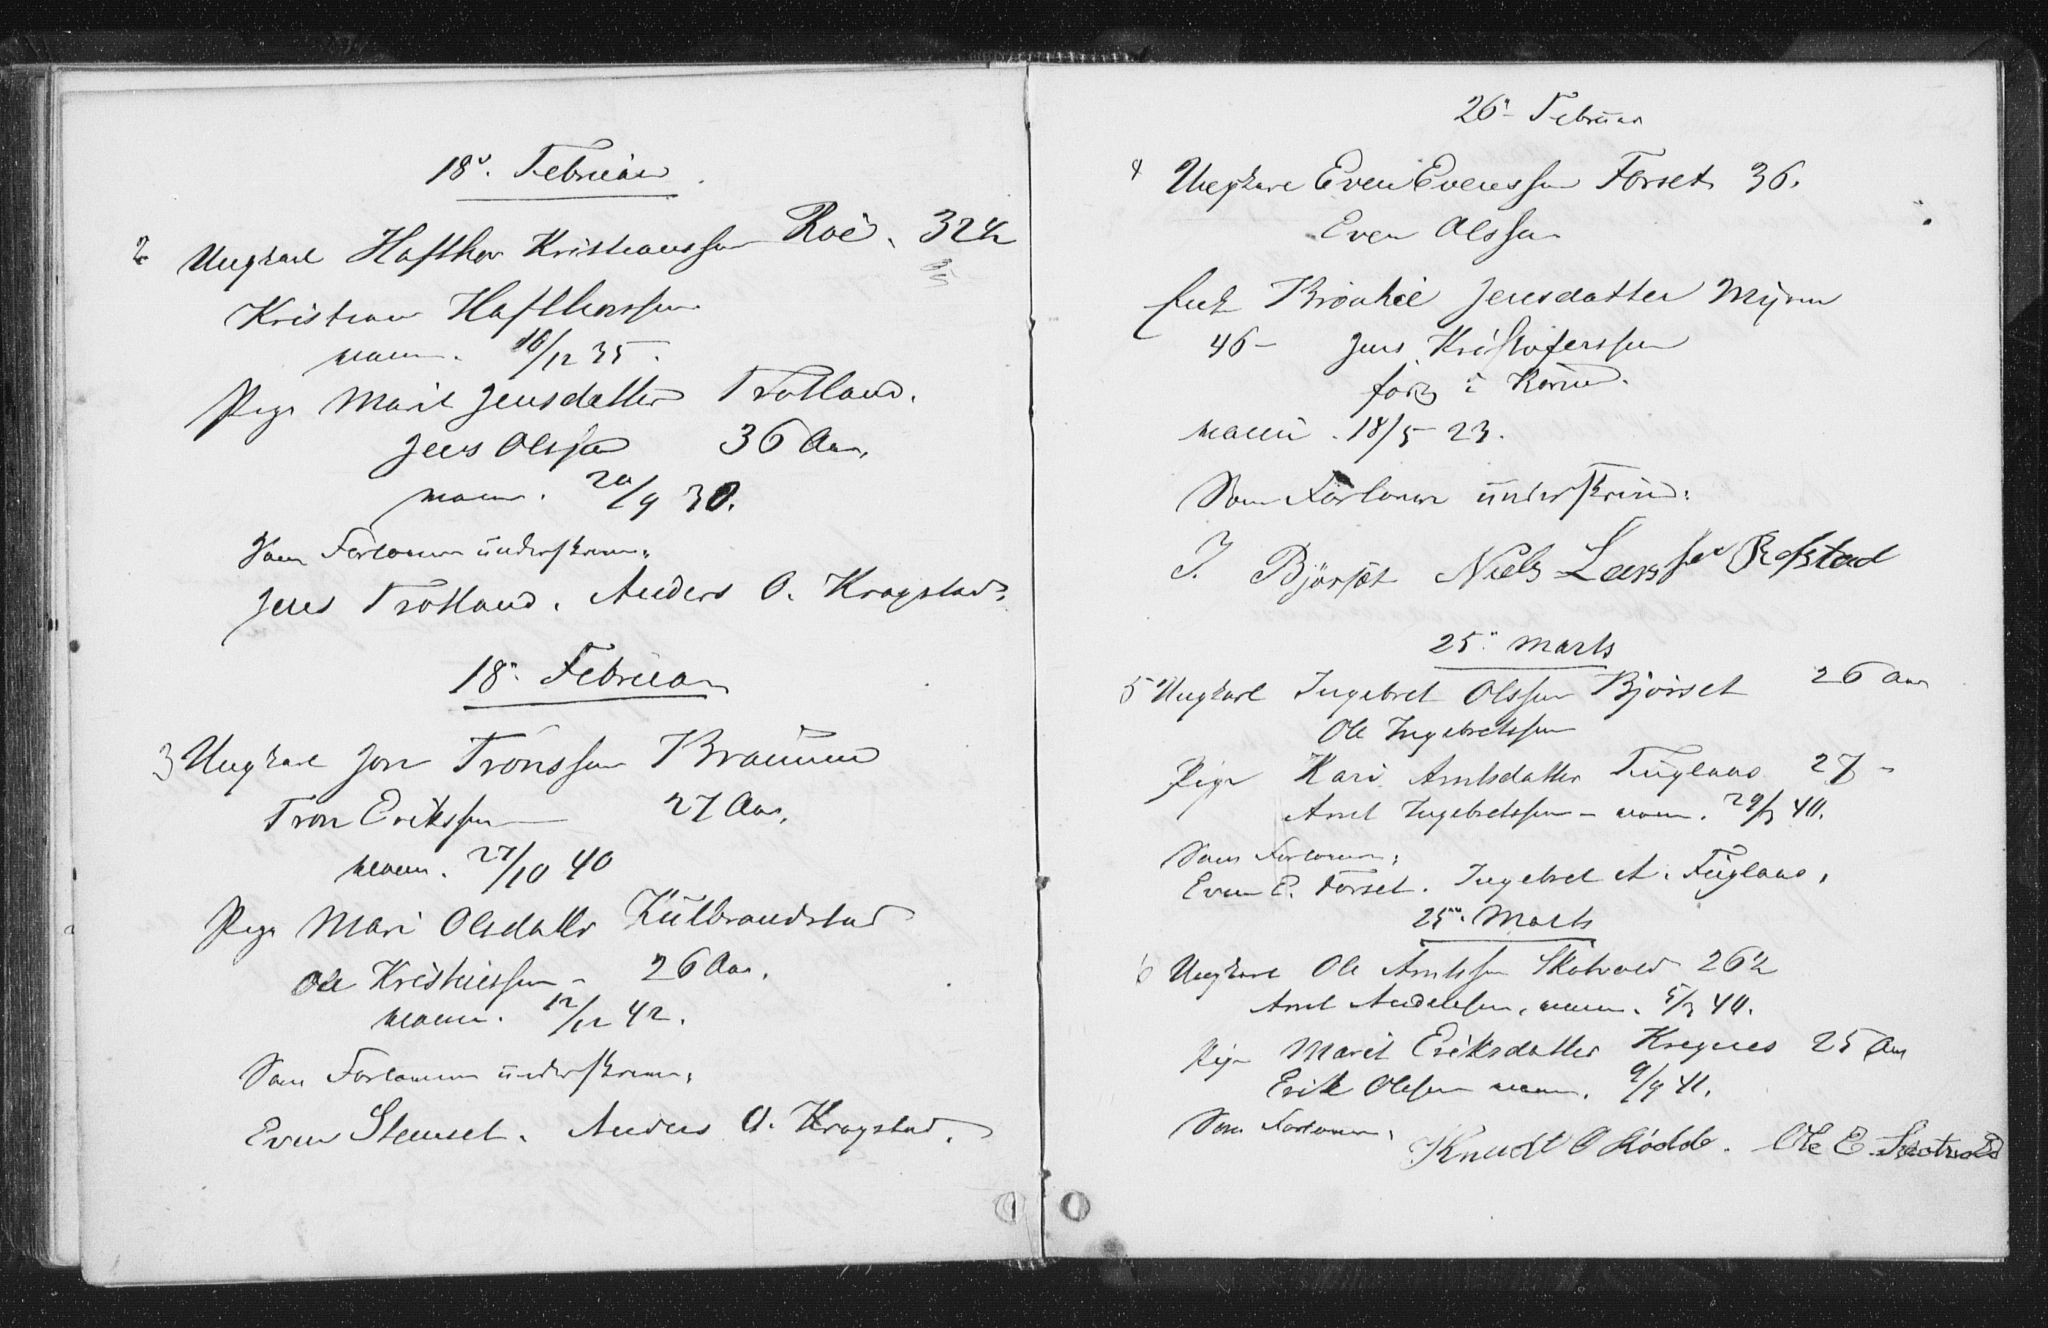 18de Februar
2 Ungkarl Hafthor Kristianssen Roë. 32 1/2
Kristian Hafthorssen
vaccin. 16/12 35.
Pige Marit Jensdatter Trotland.
Jens Olssen 36 Aar.
vaccin. 20/9 30.
Som Forlovere underskrive:
Jens Trotland. Anders O. Kragstad.
18de Februar
3 Ungkarl Jon Tronssen Braüün
Tron Erikssen 27 Aar.
vaccin. 27/10 40
Pige Mari Olsdatter Külbrandstad
Ole Kristiessen - 26 Aar.
vaccin. 12/12 42.
Som Forlovere underskrive:
Even Stenset. Anders O. Kragstad.
26de Februar
4 Ungkarl Even Evenssen Forset 36.
Even Olssen
Enke Jensdatter Myren
46 - Jens Kristoferssen
vaccin. 18/5 23.
Som Forlovere underskrive:
I. Bjørset Niels Larssen Refstad
25de Marts
5 Ungkarl Ingebret Olssen Bjørset 26 Aar
Ole Ingebretssen
Pige Kari Arntsdatter Füglaas 27 -
Arnt Ingebretssen - vaccin. 29/3 40.
Som Forlovere:
Even E. Forset. Ingebret A. Füglaas.
25de Marts
6 Ungkarl Ole Arntssen Skotvold 26 1/2
Arnt Anderssen, vaccin. 5/3 40.
Pige Marit Eriksdatter Kregnes 25 Aar
Erik Olssen vaccin. 9/9 41.
Som Forlovere:
Knudt O Lodde. Ole E. Skotvold